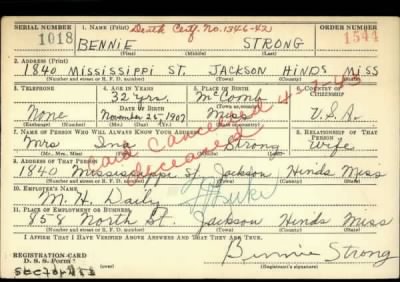 SERIAL NUMBER 1. NAME (Print) Death Certf. No. 1346-42 ORDER NUMBER
1018 BENNIE STRONG 1544
(First) (Middle) (Last)
2. ADDRESS (Print)
1840 MISSISSIPPI ST. JACKSON HINDS MISS
(Number and street or R. F. D. number) (Town) (County) (State)
3. TELEPHONE 4. AGE IN YEARS 5. PLACE OF BIRTH 6. COUNTRY OF CITIZENSHIP
32 yrs. McComb
DATE OF BIRTH (Town or county)
None November 25 1907 Miss U.S.A.
(Exchange) (Number) (Mo.) (Day) (Yr.) (State or country)
7. NAME OF PERSON WHO WILL ALWAYS KNOW YOUR ADDRESS 8. RELATIONSHIP OF THAT PERSON
Mrs Ina Strong Wife
(Mr., Mrs., Miss) (First) (Middle) (Last)
Card Cancelled
deceased
9. ADDRESS OF THAT PERSON
1840 Mississippi St Jackson Hinds Miss
(Number and street or R. F. D. number) (Town) (County) (State)
10. EMPLOYER'S NAME
M. H. Daily
11. PLACE OF EMPLOYMENT OR BUSINESS
858 North St. Jackson Hinds Miss
(Number and street or R. F. D. number) (Town) (County) (State)
I AFFIRM THAT I HAVE VERIFIED ABOVE ANSWERS AND THAT THEY ARE TRUE.
REGISTRATION CARD
D. S. S. Form 1 Bennie Strong
(Registrant's signature)